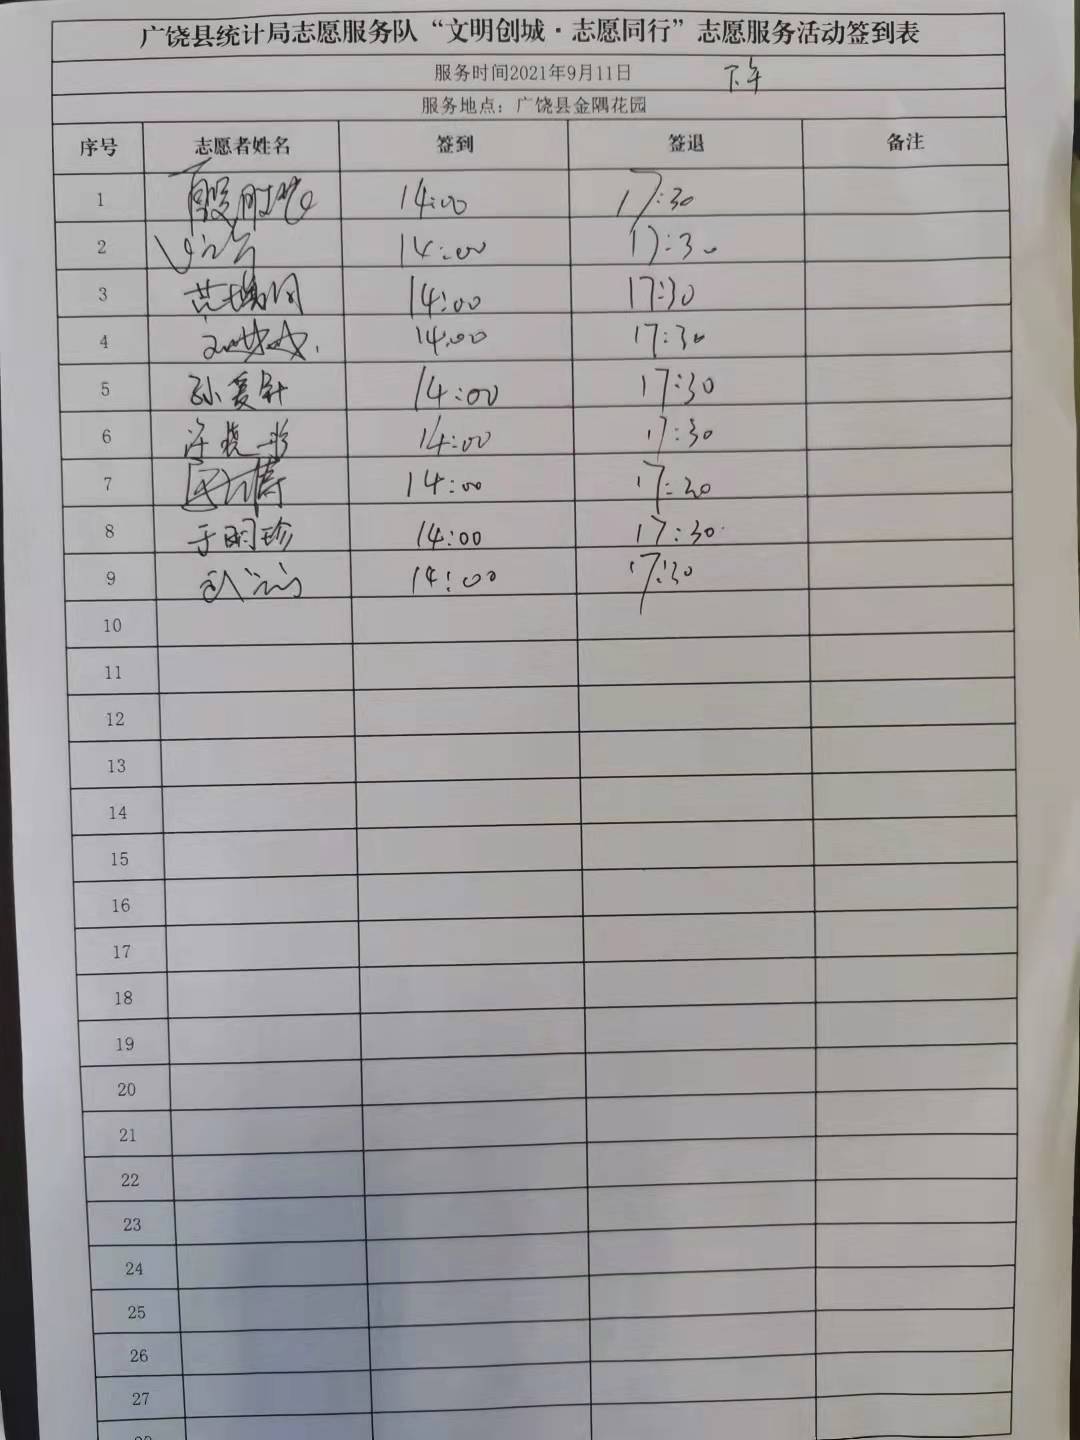 广饶县统计局志愿服务队“文明创城·志愿同行”志愿服务活动签到表
服务时间2021年9月11日 下午
服务地点：广饶县金隅花园
序号 志愿者姓名 签到 签退 备注
1 14:00 17:30
2 14:00 17:30
3 14:00 17:30
4 14:00 17:30
5 孙爱针 14:00 17:30
6 许晓彤 14:00 17:30
7 14:00 17:30
8 于明珍 14:00 17:30
9 14:00 17:30
10
11
12
13
14
15
16
17
18
19
20
21
22
23
24
25
26
27